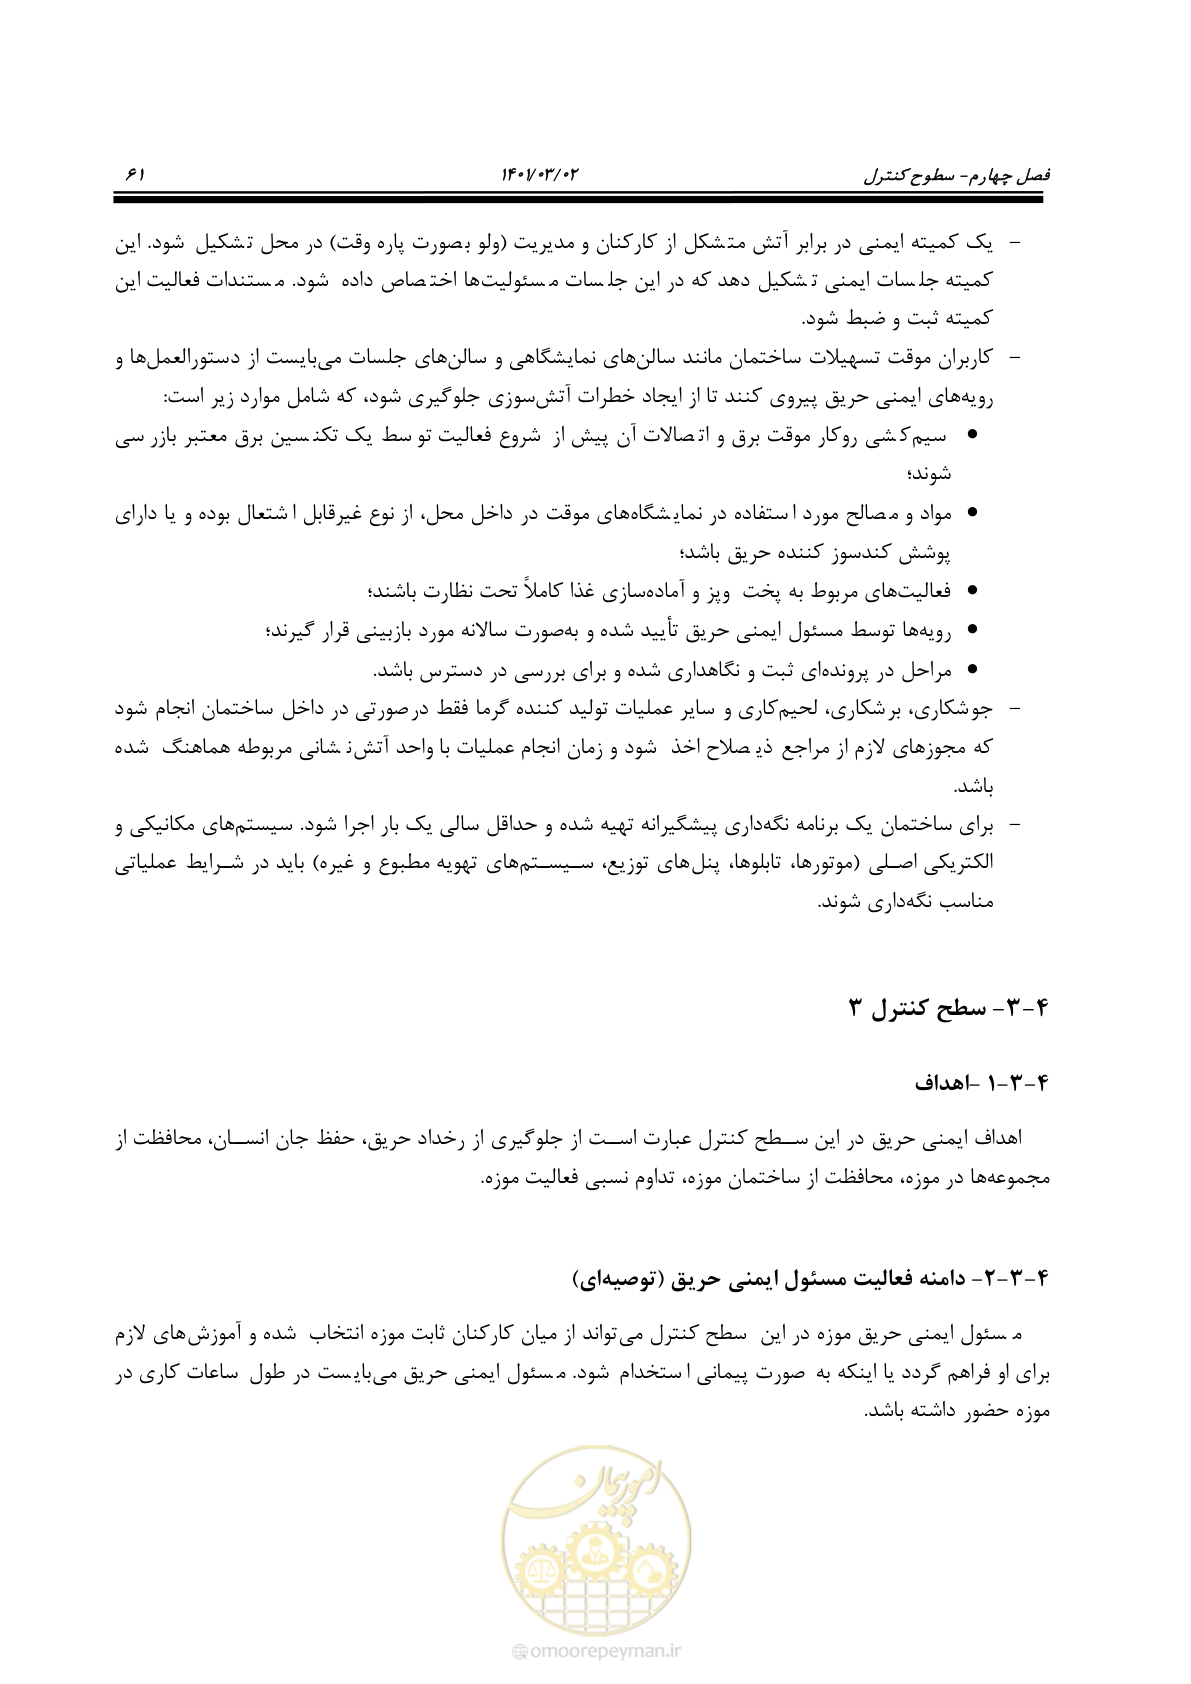 فصل چهارم- سطوح کنترل ۱۴۰۱/۰۳/۰۲ ۶۱
– یک کمیته ایمنی در برابر آتش متشکل از کارکنان و مدیریت (ولو بصورت پاره وقت) در محل تشکیل شود. این
کمیته جلسات ایمنی تشکیل دهد که در این جلسات مسئولیت‌ها اختصاص داده شود. مستندات فعالیت این
کمیته ثبت و ضبط شود.
– کاربران موقت تسهیلات ساختمان مانند سالن‌های نمایشگاهی و سالن‌های جلسات می‌بایست از دستورالعمل‌ها و
رویه‌های ایمنی حریق پیروی کنند تا از ایجاد خطرات آتش‌سوزی جلوگیری شود، که شامل موارد زیر است:
● سیم‌کشی روکار موقت برق و اتصالات آن پیش از شروع فعالیت توسط یک تکنسین برق معتبر بازرسی
شوند؛
● مواد و مصالح مورد استفاده در نمایشگاه‌های موقت در داخل محل، از نوع غیرقابل اشتعال بوده و یا دارای
پوشش کندسوز کننده حریق باشد؛
● فعالیت‌های مربوط به پخت وپز و آماده‌سازی غذا کاملاً تحت نظارت باشند؛
● رویه‌ها توسط مسئول ایمنی حریق تأیید شده و به‌صورت سالانه مورد بازبینی قرار گیرند؛
● مراحل در پرونده‌ای ثبت و نگاهداری شده و برای بررسی در دسترس باشد.
– جوشکاری، برشکاری، لحیم‌کاری و سایر عملیات تولید کننده گرما فقط درصورتی در داخل ساختمان انجام شود
که مجوزهای لازم از مراجع ذیصلاح اخذ شود و زمان انجام عملیات با واحد آتش‌نشانی مربوطه هماهنگ شده
باشد.
– برای ساختمان یک برنامه نگه‌داری پیشگیرانه تهیه شده و حداقل سالی یک بار اجرا شود. سیستم‌های مکانیکی و
الکتریکی اصلی (موتورها، تابلوها، پنل‌های توزیع، سیستم‌های تهویه مطبوع و غیره) باید در شرایط عملیاتی
مناسب نگه‌داری شوند.
۴-۳- سطح کنترل ۳
۴-۳-۱ -اهداف
اهداف ایمنی حریق در این سطح کنترل عبارت است از جلوگیری از رخداد حریق، حفظ جان انسان، محافظت از
مجموعه‌ها در موزه، محافظت از ساختمان موزه، تداوم نسبی فعالیت موزه.
۴-۳-۲- دامنه فعالیت مسئول ایمنی حریق (توصیه‌ای)
مسئول ایمنی حریق موزه در این سطح کنترل می‌تواند از میان کارکنان ثابت موزه انتخاب شده و آموزش‌های لازم
برای او فراهم گردد یا اینکه به صورت پیمانی استخدام شود. مسئول ایمنی حریق می‌بایست در طول ساعات کاری در
موزه حضور داشته باشد.
امورپیمان
omoorepeyman.ir